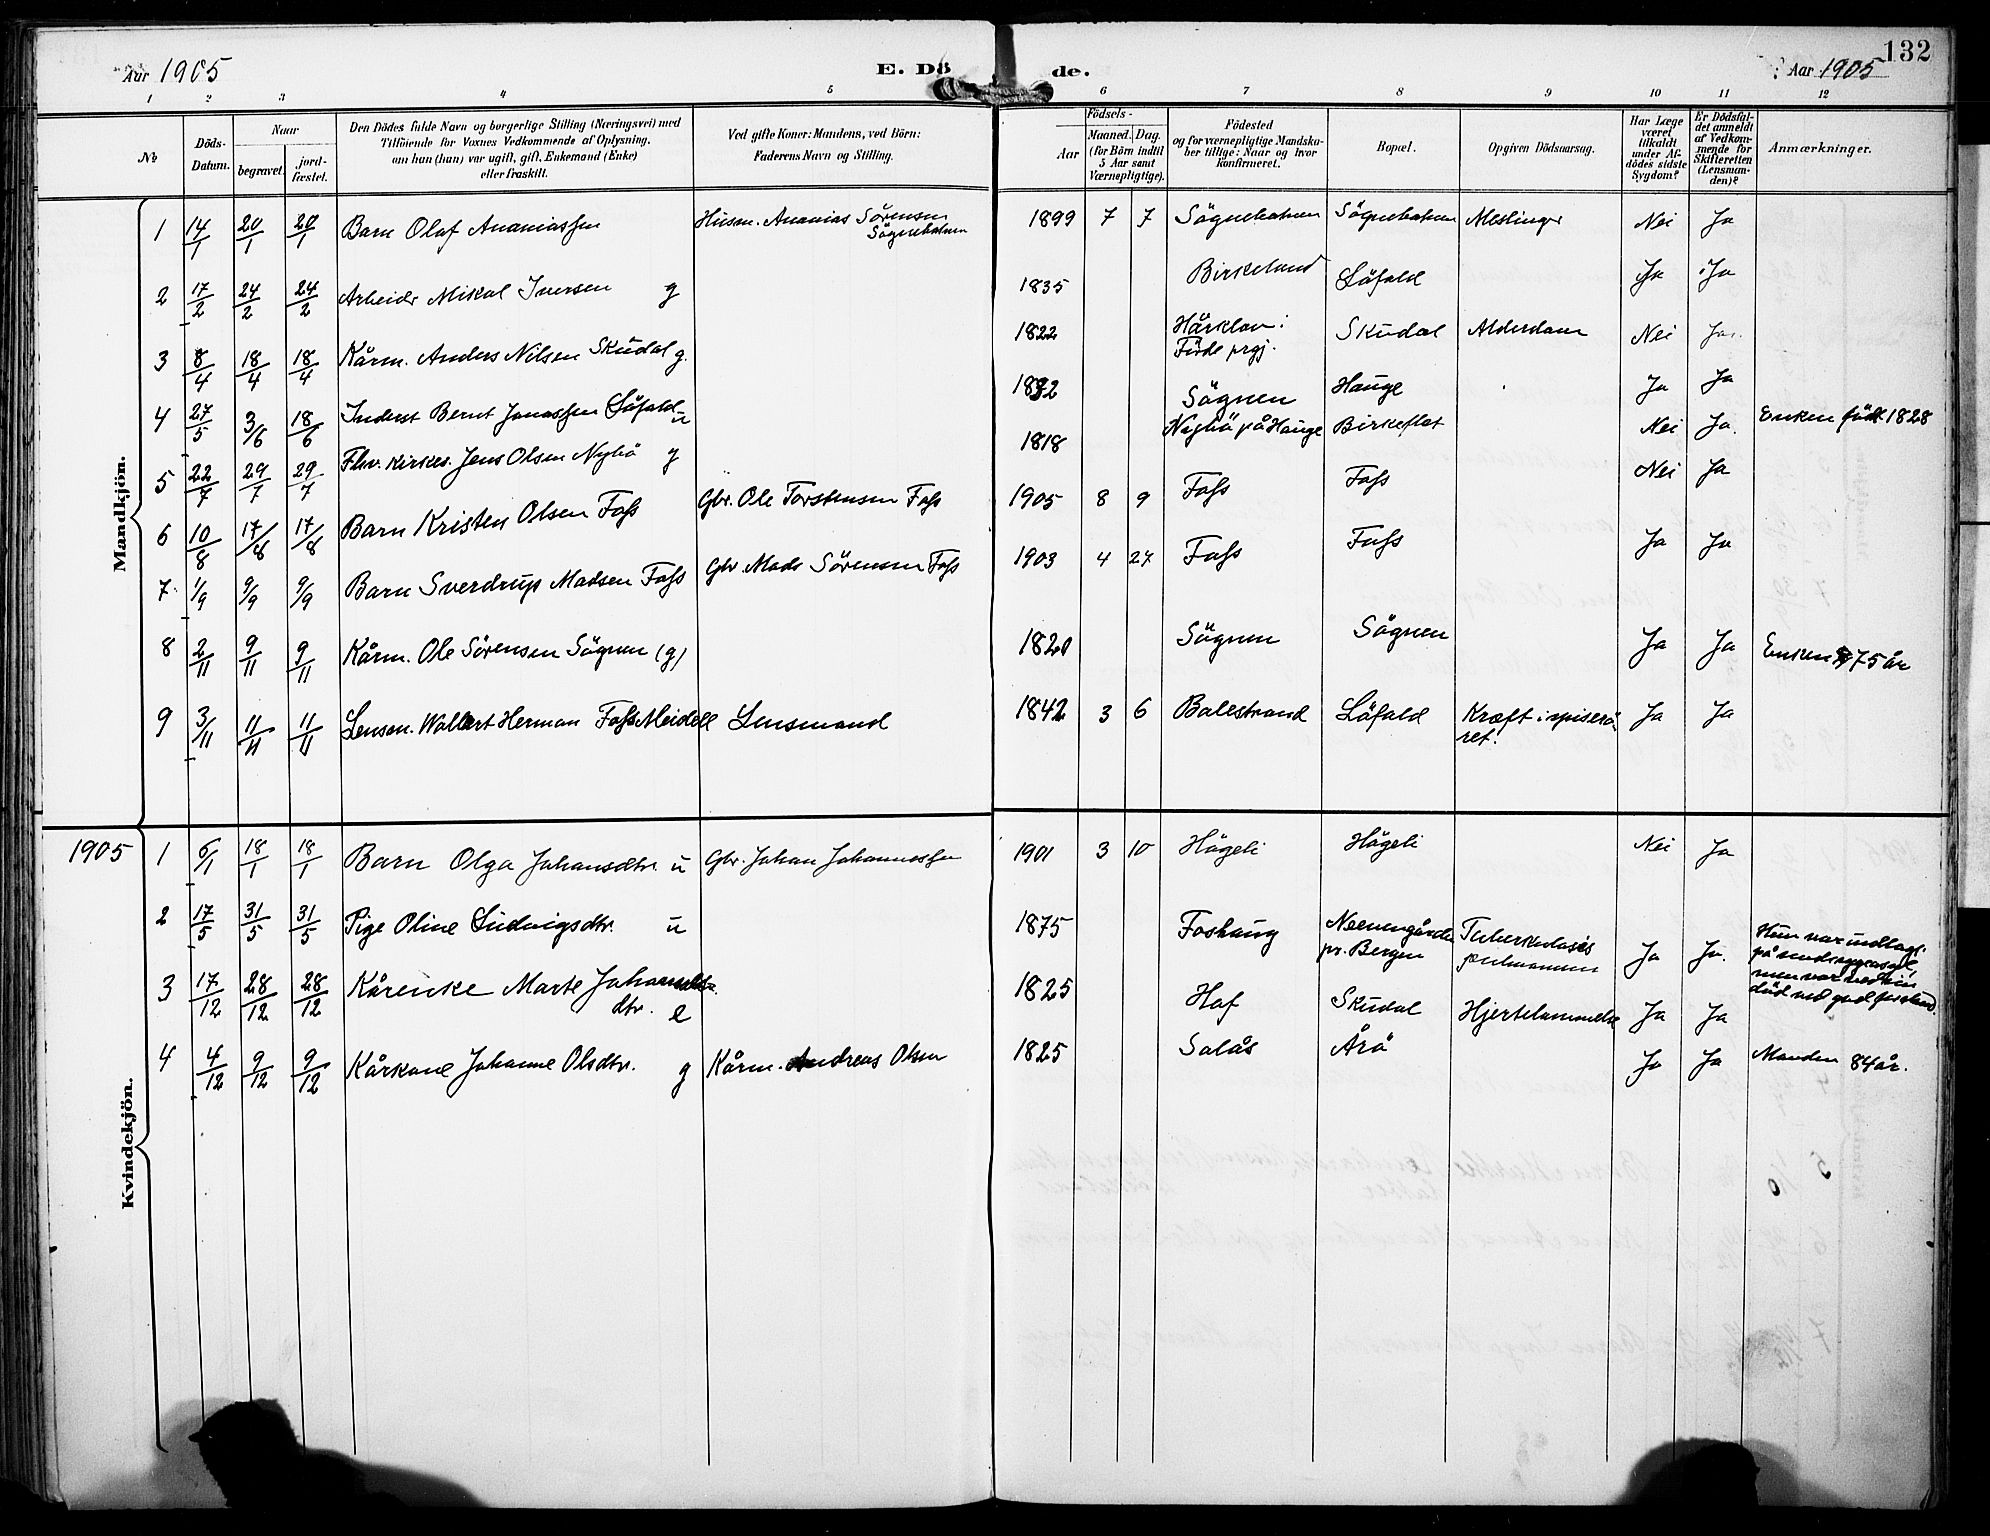 Aar 1905 E. Dö de. Aar 1905 132
1 2 3 4 5 6 7 8 9 10 11 12
No
Döds-Datum.
Naar
begravet.
jord-fæstet.
Den Dödes fulde Navn og borgerlige Stilling (Næringsvei) med
Tilföiende for Voxnes Vedkommende af Oplysning,
om han (hun) var ugift, gift, Enkemand (Enke)
eller fraskilt.
Ved gifte Koner: Mandens, ved Börn:
Faderens Navn og Stilling.
Födsels-
Aar
Maaned. Dag.
(for Börn indtil
5 Aar samt
Værnepligtige).
Födested
og for værnepligtige Mandska-
ber tillige: Naar og hvor
konfirmeret.
Bopæl.
Opgiven Dödsaarsag.
Har Læge
været
tilkaldt
under Af-
dödes sidste
Sygdom?
Er Dödsfal-
det anmeldt
af Vedkom-
mende for
Skifteretten
(Lensman-
den)?
Anmærkninger.
Mandkjön.
1 14/1 20/1 20/1 Barn Olaf Ananiassen Husm. Ananias Sörensen 1899 7 7 Meslinger Nei Ja
2 17/2 24/2 24/2 Arbeider Mikal Iversen g 1835 Birkeland Löfald Ja Ja
3 8/4 18/4 18/4 Kårm. Anders Nilsen Skudal g. 1822 Förde prgj. Skudal Alderdom Nei Ja.
4 27/5 3/6 18/6 Inderst Bernt Jonassen Löfald u 1832 Sögnen Hauge Ja Ja
5 22/7 29/7 29/7 Fhv. kirkes. Jens Olsen Nybö g 1818 Nybö på Hauge Birkeflot Nei Ja. Enken född 1828
6 10/8 17/8 17/8 Barn Kristen Olsen Foss Gbr. Ole Torstensen Foss 1905 8 9 Foss Foss Nei Ja
7. 1/9 9/9 9/9 Barn Sverdrup Madsen Foss Gbr. Mads Sörensen Foss 1903 4 27 Foss Foss Ja Ja
8 2/11 9/11 9/11 Kårm. Ole Sörensen Sögnen (g) 1820 Sögnen Sögnen Ja Ja Enken 75 år
9 3/11 11/11 11/11 Lensm. Wollert Herman Foss Meidell Lensmand 1842 3 6 Balestrand Löfald Kræft i spiserö-
ret. Ja Ja
Kvindekjön.
1905 1 6/1 18/1 18/1 Barn Olga Johansdtr. u Gbr. Johan Johannessen 1901 3 10 Högeli Högeli Nei Ja
2 17/5 31/5 31/5 Pige Oline Ludvigsdtr. u 1875 Foshaug pr. Bergen Tuberkulosis
pulmonum Ja Ja. Hun var indlagt
3 17/12 28/12 28/12 Kårenke Marte
dtr. e 1825 Hof Skudal Hjertelammelse Ja Ja
4 4/12 9/12 9/12 Kårkone Johanne Olsdtr. g Kårm. Andreas Olsen 1825 Solås Årö Ja Ja Manden 84 år.